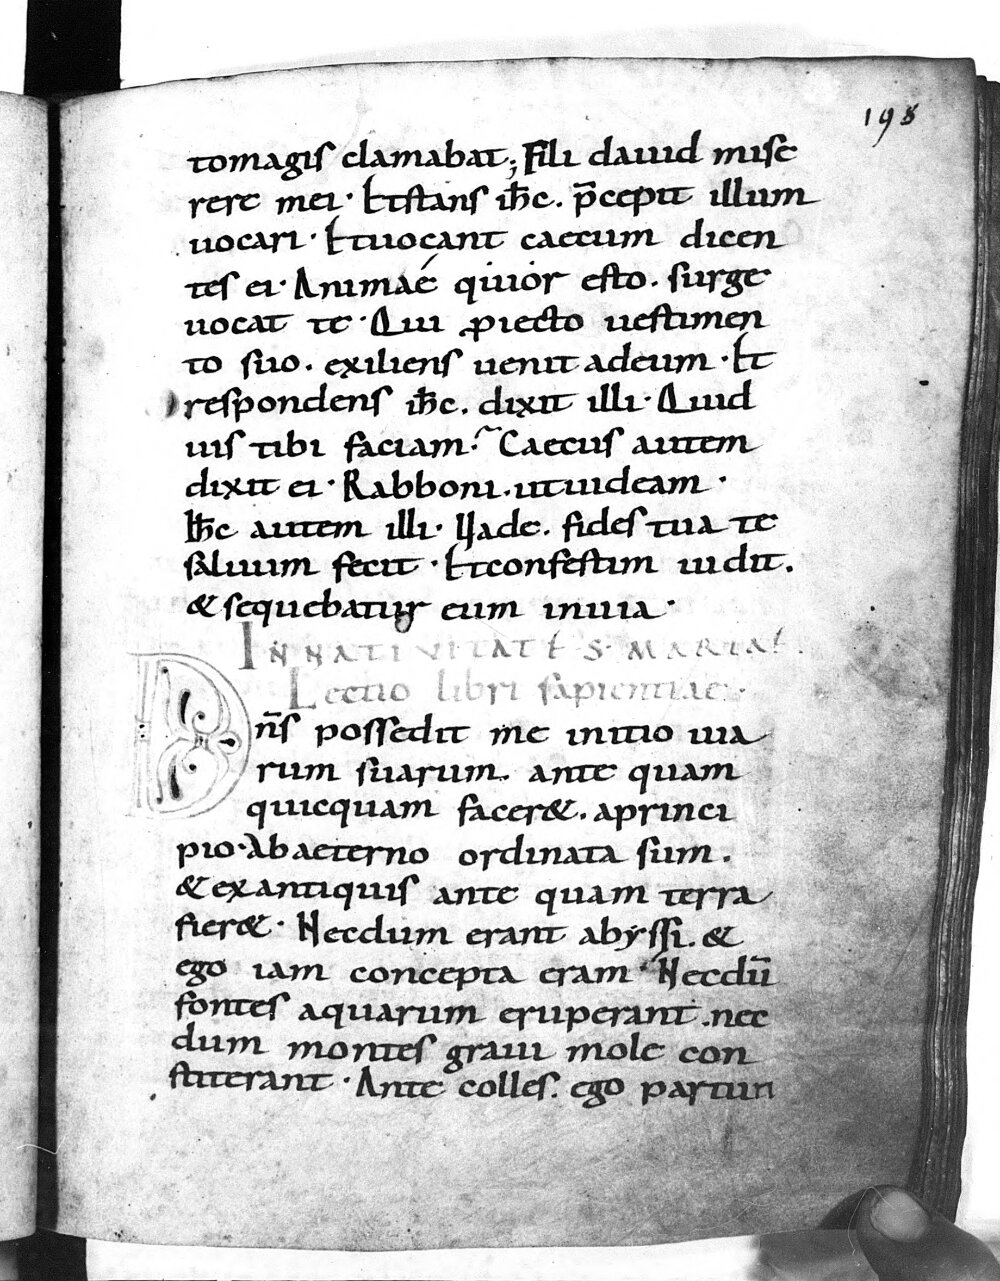 198
tomagis clamabat; Fili dauid mise
rere mei· Et stans ih̄c. p̄cepit illum
uocari· Et uocant caecum dicen
tes ei· Animaé quior esto. surge
uocat te· Qui proiecto uestimen
to suo. exiliens uenit adeum· Et
respondens ih̄c. dixit illi· Quid
uis tibi faciam· Caecus autem
dixit ei· Rabboni. utuideam·
Ih̄c autem illi· Uade. fides tua te
saluum fecit· Etconfestim uidit.
& sequebatur eum inuia·
IN NATIVITATE S· MARIAE·
Lectio libri sapientiae·
Dn̄s possedit me initio uia
rum suarum. ante quam
quicquam facer&. aprinci
pio· Ab aeterno ordinata sum.
& exantiquis ante quam terra
fier&· Necdum erant abyssi. &
ego iam concepta eram· Necdū
fontes aquarum eruperant. nec
dum montes graui mole con
stiterant· Ante colles. ego parturi